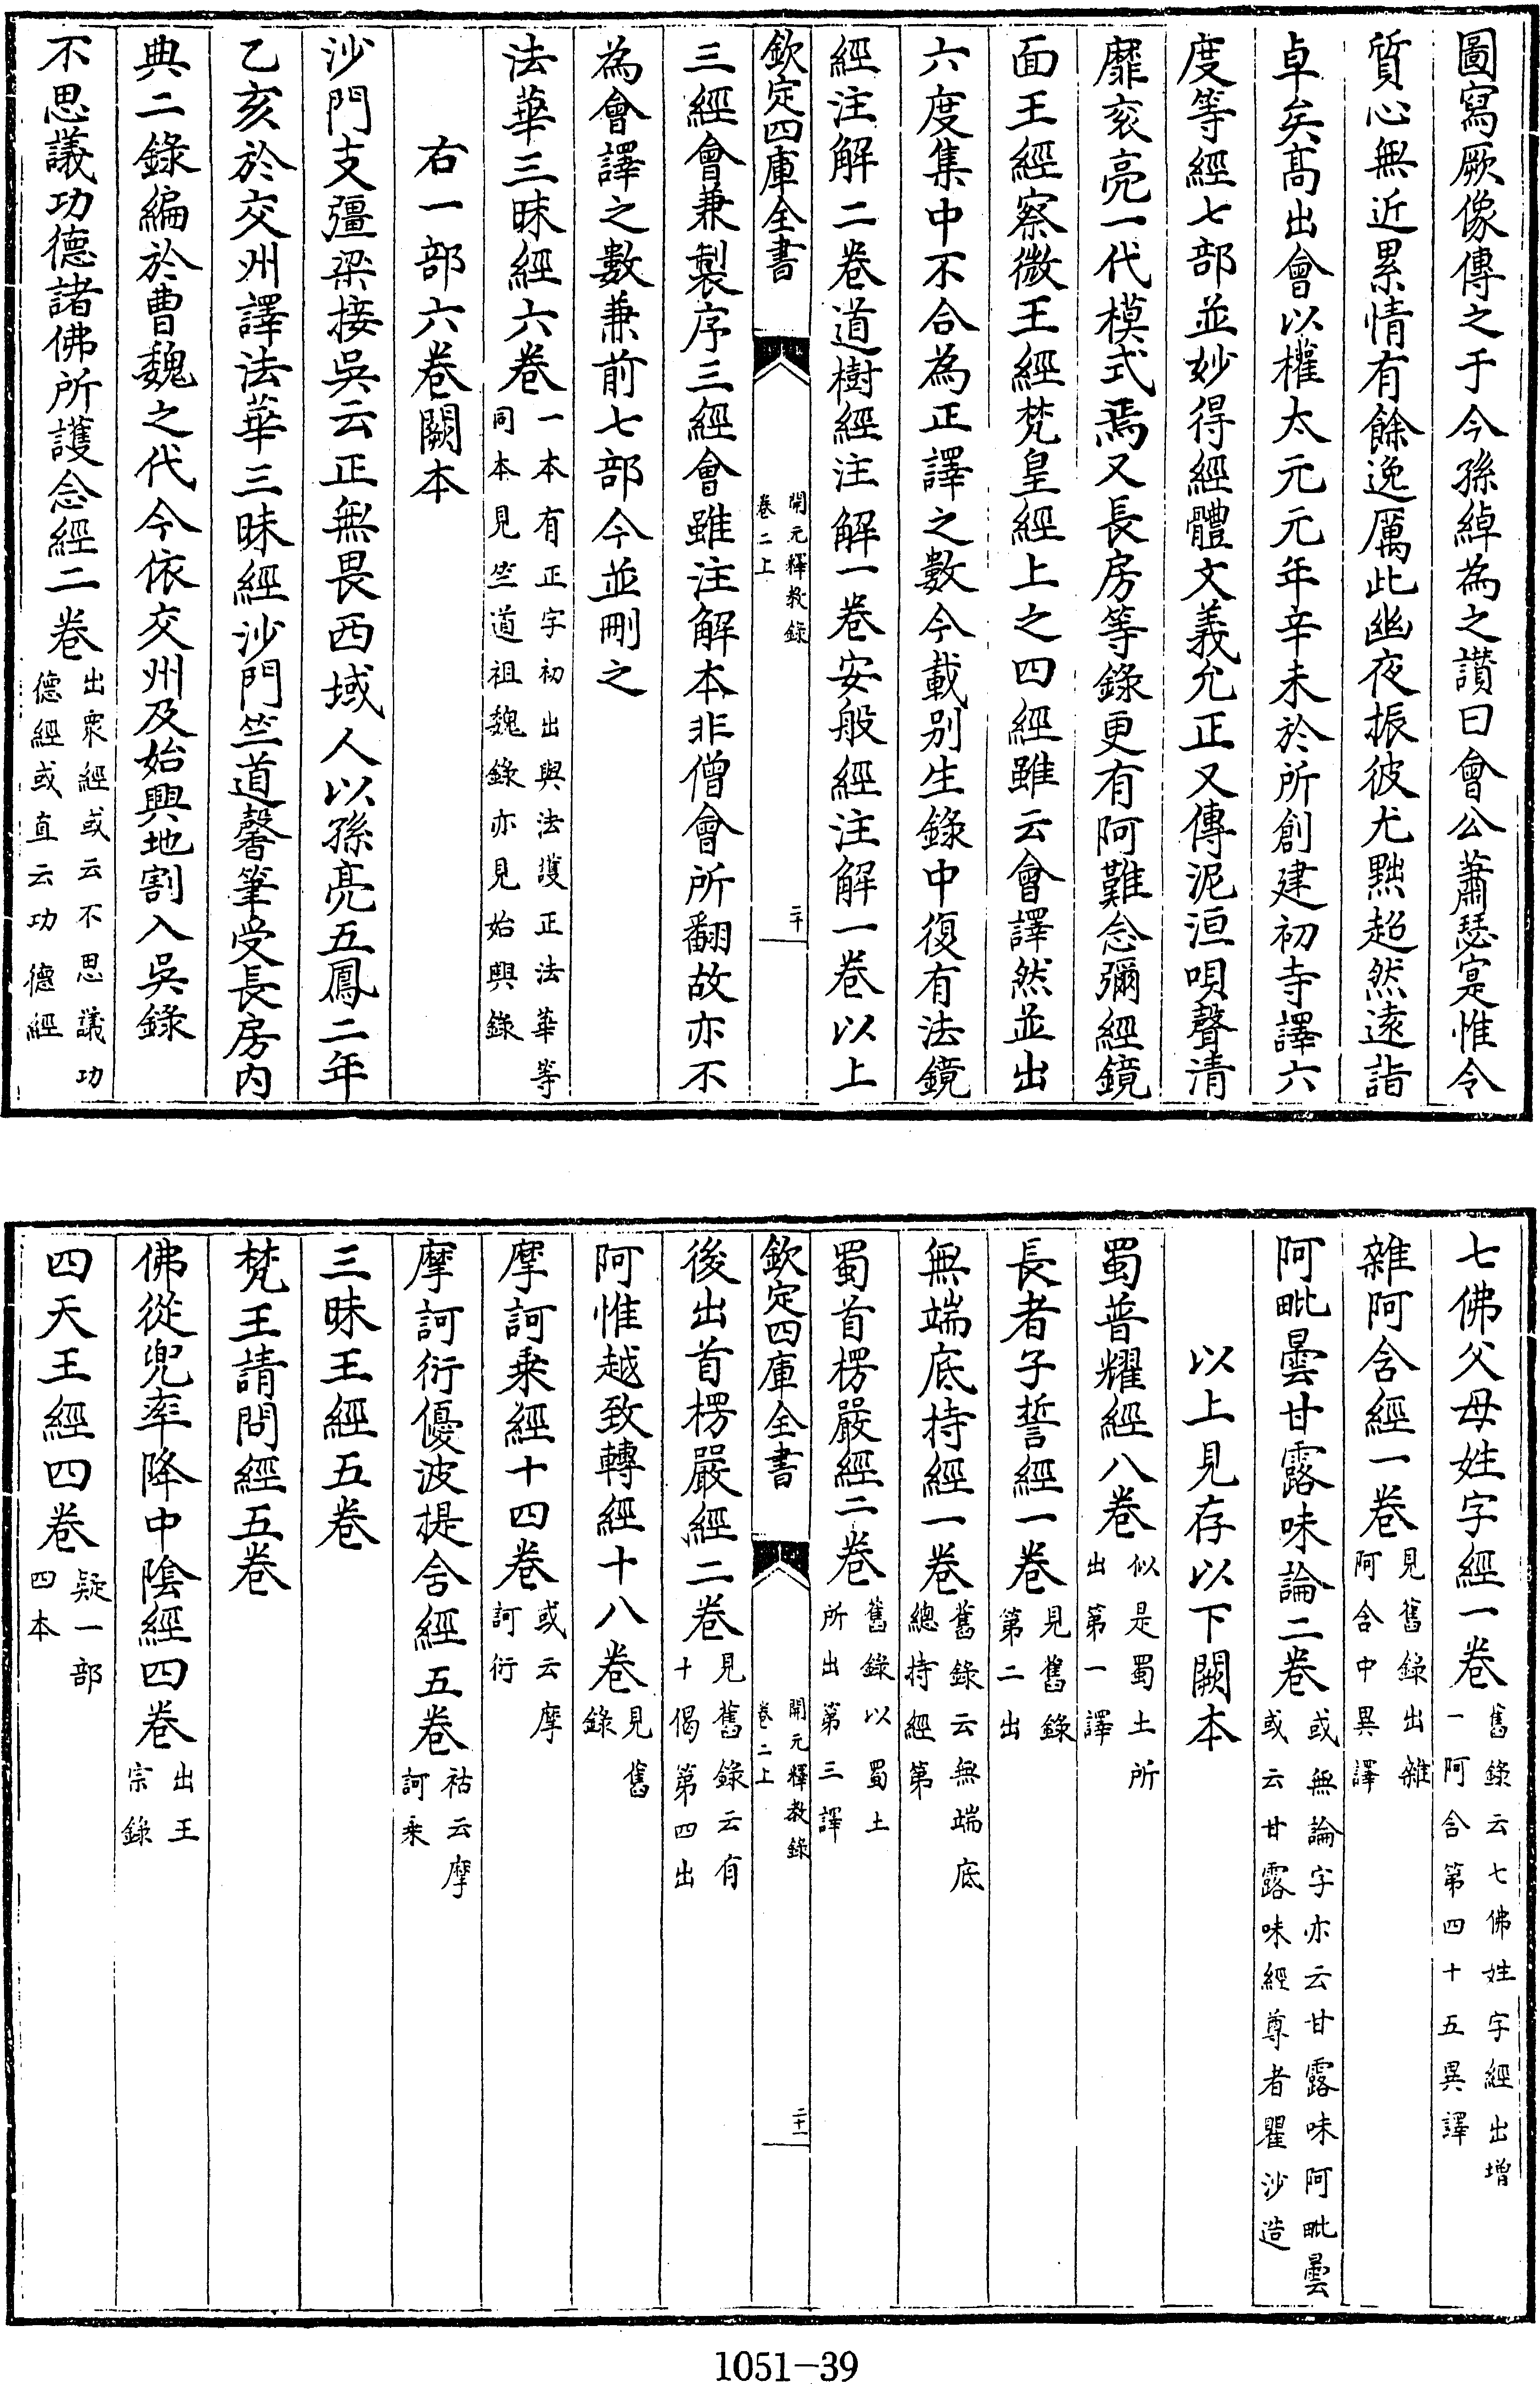 圖寫厥像傳之于今孫綽為之讃曰會公蕭瑟寔惟令
質心無近累情有餘逸厲此幽夜振彼尤黜超然遠詣
卓矣髙出會以權太元元年辛未於所創建初寺譯六
度等經七部並妙得經體文義允正又傳泥洹唄聲清
靡哀亮一代模式焉又長房等錄更有阿難念彌經鏡
面王經察微王經梵皇經上之四經雖云會譯然並出
六度集中不合為正譯之數今載别生錄中復有法鏡
經注解二卷道樹經注解一卷安般經注解一卷以上
欽定四庫全書
開元釋教錄
卷二上
二十
三經會兼製序三經會雖注解本非僧會所翻故亦不
為會譯之數兼前七部今並刪之
法華三昧經六卷
一本有正字初出與法護正法華等
同本見竺道祖魏錄亦見始興錄
右一部六卷闕本
沙門支彊梁接吳云正無畏西域人以孫亮五鳳二年
乙亥於交州譯法華三昧經沙門竺道馨筆受長房内
典二錄編於曹魏之代今依交州及始興地割入吳錄
不思議功德諸佛所護念經二卷
出衆經或云不思議功
德經或直云功德經
七佛父母姓字經一卷
舊錄云七佛姓字經出增
一阿含第四十五異譯
雜阿含經一卷
見舊錄出雜
阿含中異譯
阿毗曇甘露味論二卷
或無論字亦云甘露味阿毗曇
或云甘露味經尊者瞿沙造
以上見存以下闕本
蜀普耀經八卷
似是蜀土所
出第一譯
長者子誓經一卷
見舊錄
第二出
無端底持經一卷
舊錄云無端底
總持經第
蜀首楞嚴經二卷
舊錄以蜀土
所出第三譯
欽定四庫全書
開元釋教錄
卷二上
二十一
後出首楞嚴經二卷
見舊錄云有
十偈第四出
阿惟越致轉經十八卷
見舊
錄
摩訶乗經十四卷
或云摩
訶衍
摩訶衍優波提舍經五卷
祐云摩
訶乗
三昧王經五卷
梵王請問經五卷
佛從兜率降中陰經四卷
出王
宗錄
四天王經四卷
疑一部
四本
1051-39